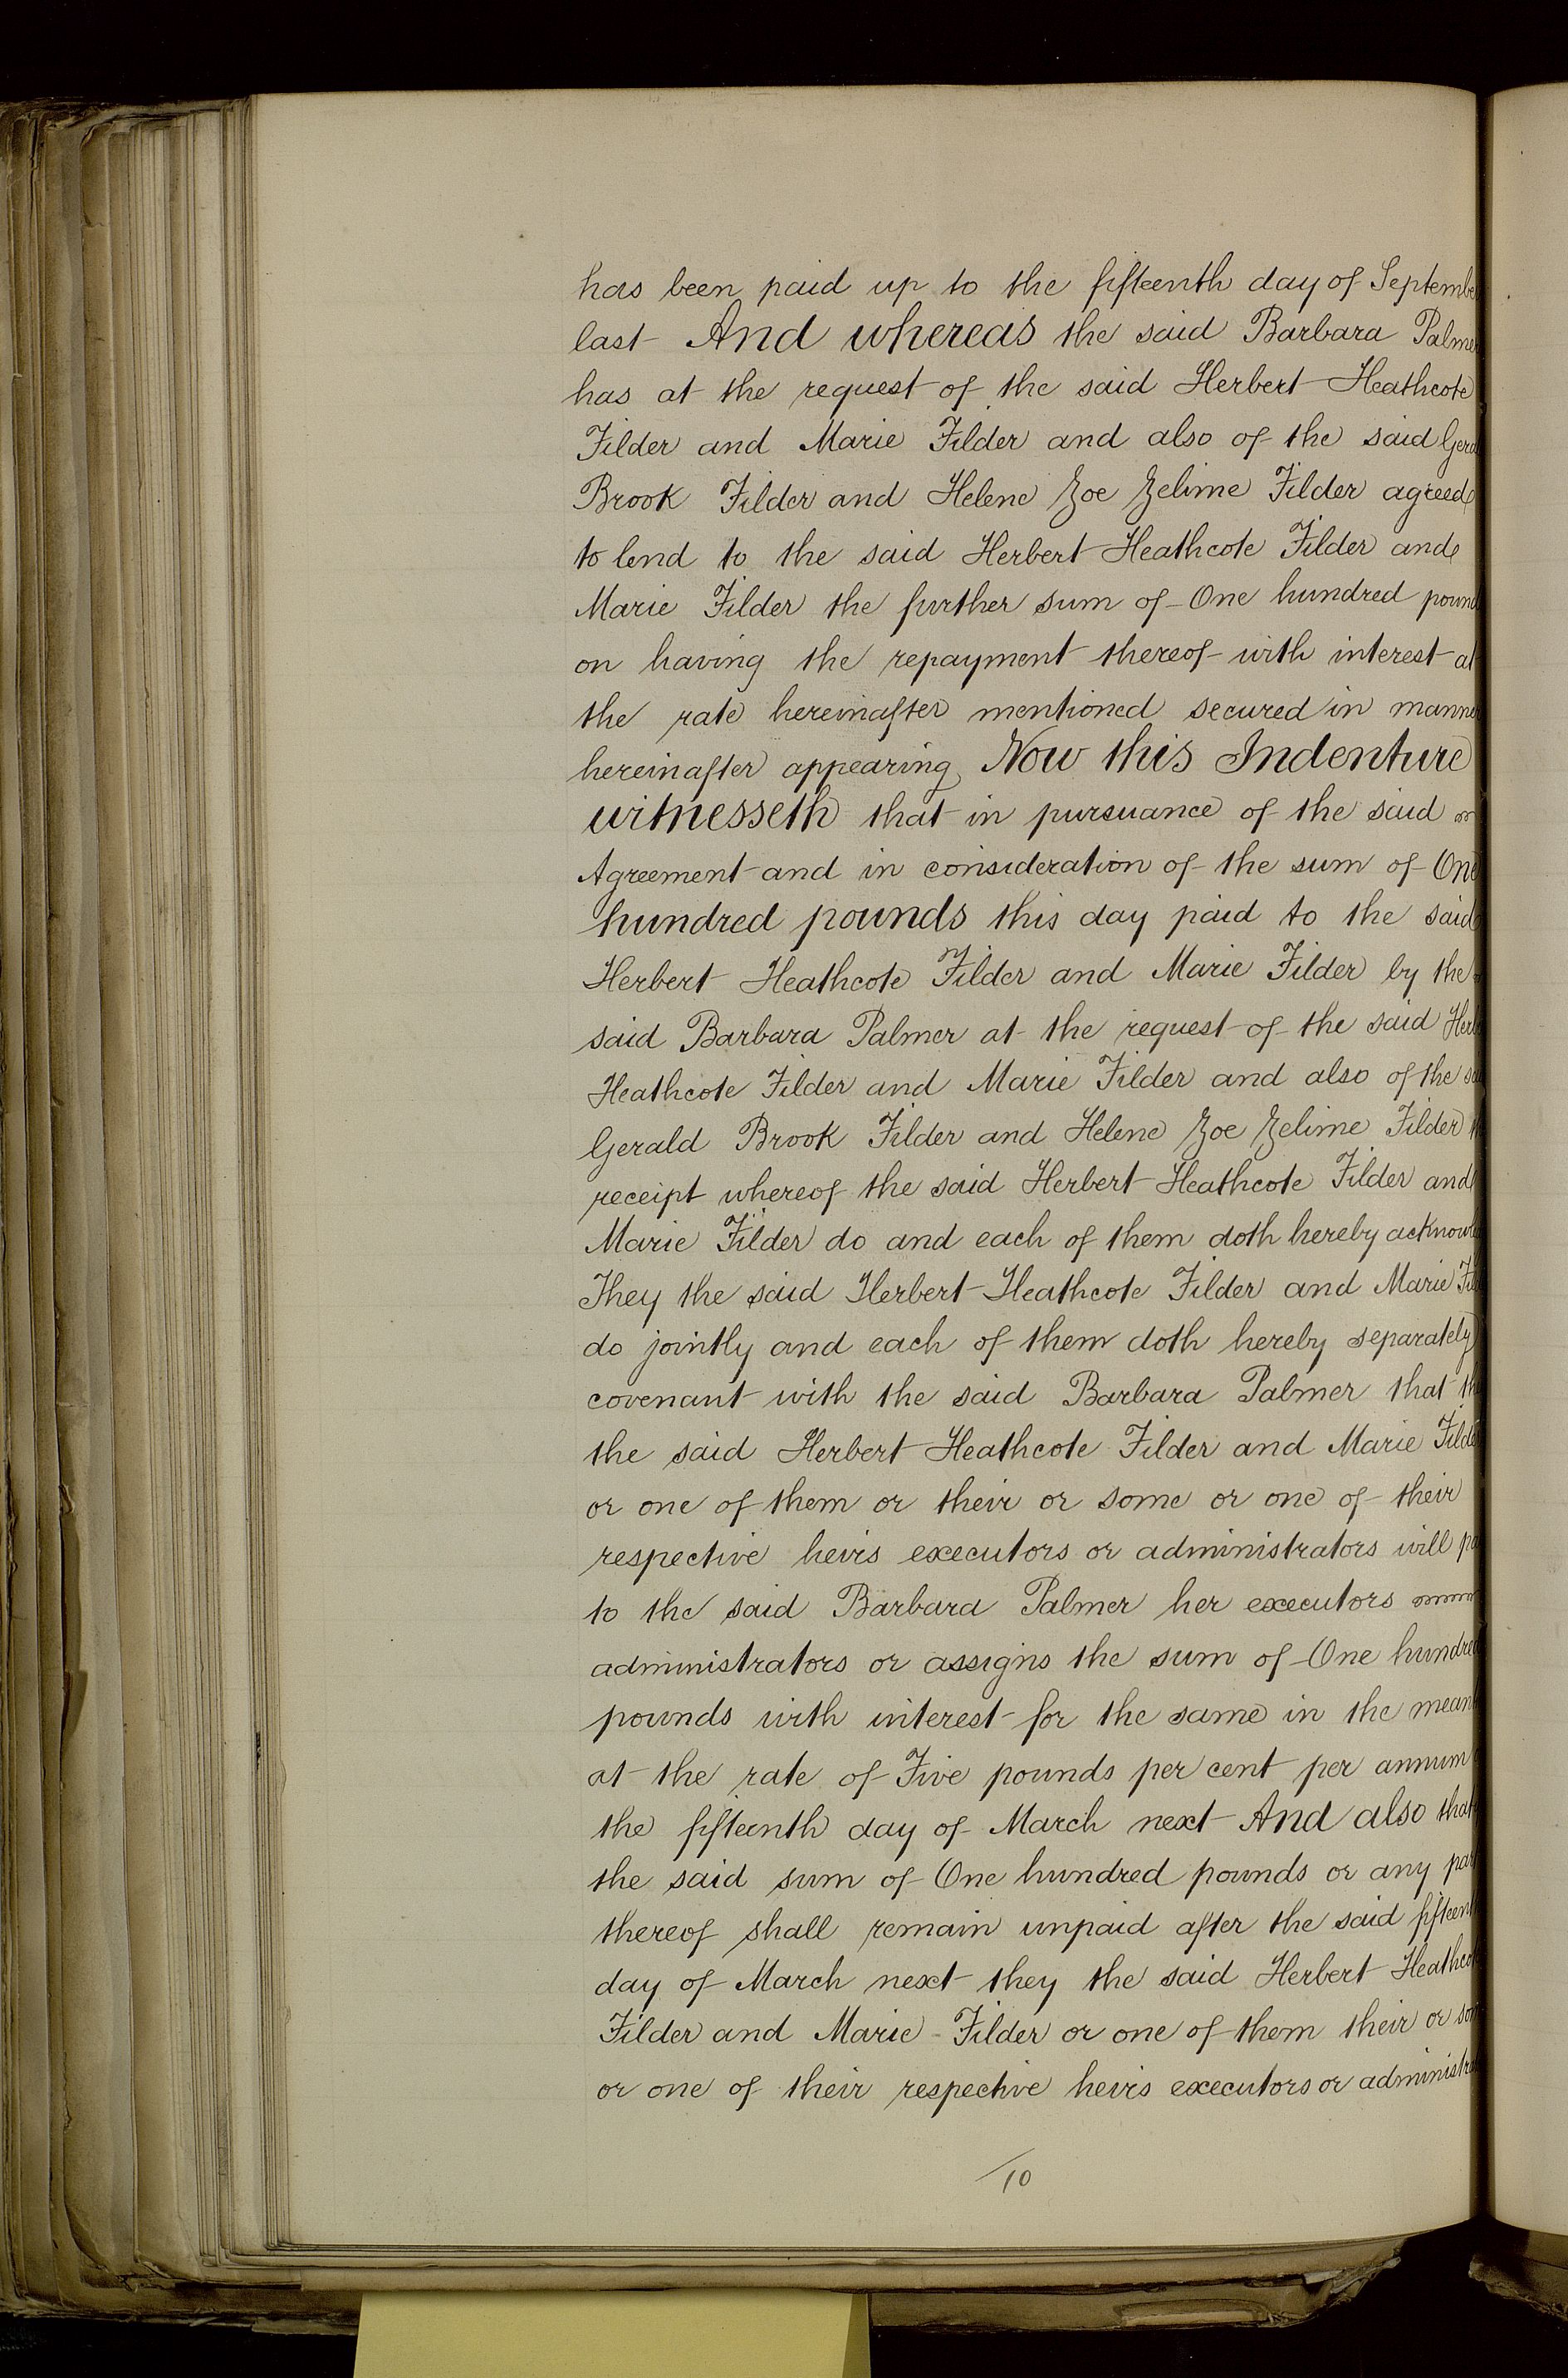 has been paid up to the fifteenth day of Septembe
last And whereas the said Barbara Palmer
has at the request of the said Herbert Heathcote
Filder and Marie Filder and also of the said Gera
Brook Filder and Helene Zoe Zelime Filder agreed
to lend to the said Herbert Heathcote Filder and
Marie Filder the further sum of One hundred pound
on having the repayment thereof with interest at
the rate hereinafter mentioned secured in manner
hereinafter appearing Now this Indenture
witnesseth that in pursuance of the said
Agreement and in consideration of the sum of One
hundred pounds this day paid to the said
Herbert Heathcote Filder and Marie Filder by the
said Barbara Palmer at the request of the said Herb
Heathcote Filder and Marie Filder and also of the sa
Gerald Brook Filder and Helene Zoe Zelime Filder
receipt whereof the said Herbert Heathcote Filder and
Marie Filder do and each of them doth hereby acknowle
They the said Herbert Heathcote Filder and Marie Fil
do jointly and each of them doth hereby separately
covenant with the said Barbara Palmer that th
the said Herbert Heathcote Filder and Marie Filde
or one of them or their or some or one of their
respective heirs executors or administrators will pa
to the said Barbara Palmer her executors
administrators or assigns the sum of One hundred
pounds with interest for the same in the mean
at the rate of Five pounds per cent per annum
the fifteenth day of March next And also that
the said sum of One hundred pounds or any par
thereof shall remain unpaid after the said fifteent
day of March next they the said Herbert Heathcot
Filder and Marie Filder or one of them their or som
or one of their respective heirs executors or administra
10